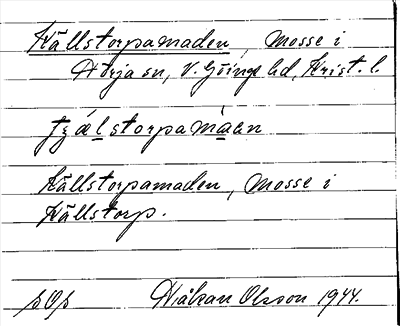 Källstorpamaden, mosse i
Norja sn, V. Göinge hd, Krist. l.
tɟǽlstorpamàen
Källstorpamaden, mosse i
Källstorp.
Håkan Olsson 1944.